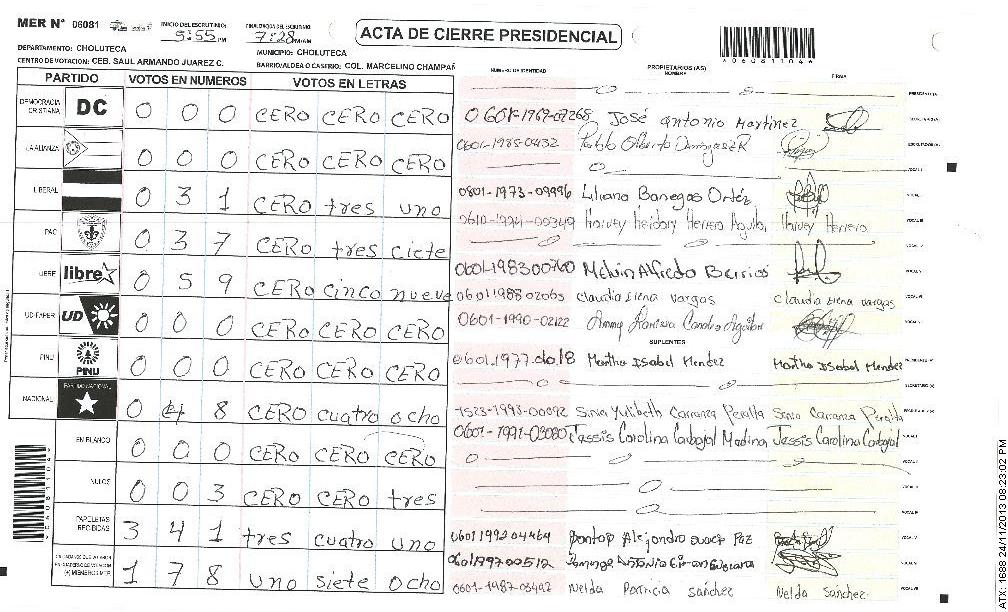 MER N° 06081
INICIO DEL ESCRUTINIO: 5:55 PM
FINALIZACION DEL ESCRUTINIO: 7:28 PM/AM
ACTA DE CIERRE PRESIDENCIAL
*060811046*
DEPARTAMENTO: CHOLUTECA
MUNICIPIO: CHOLUTECA
CENTRO DE VOTACION: CEB. SAUL ARMANDO JUAREZ C.
BARRIO/ALDEA O CASERIO: COL. MARCELINO CHAMPAÑ
PARTIDO VOTOS EN NUMEROS VOTOS EN LETRAS
NUMERO DE IDENTIDAD PROPIETARIOS (AS) NOMBRE FIRMA
DEMOCRACIA CRISTIANA DC 0 0 0 CERO CERO CERO
LA ALIANZA 0 0 0 CERO CERO CERO
LIBERAL 0 3 1 CERO tres uno
PAC 0 3 7 CERO tres ciete
LIBRE libre 0 5 9 CERO cinco nueve
UD-FAPER UD 0 0 0 CERO CERO CERO
PINU PINU 0 0 0 CERO CERO CERO
NACIONAL PARTIDO NACIONAL 0 4 8 CERO cuatro ocho
EN BLANCO 0 0 0 CERO CERO CERO
NULOS 0 0 3 CERO CERO tres
PAPELETAS RECIBIDAS 3 4 1 tres cuatro uno
CIUDADANOS QUE VOTARON EN CUADERNO DE VOTACION (+) MIEMBROS MER 1 7 8 uno siete ocho
0601-1967-07268 José Antonio Martinez
0601-1985-0432 Pablo
0801-1973-09996 Liliana Banegas Ortéz
0610-1994-00349 Harvey Heidary Herrera Aguilar Harvey Herrera
0601-198300760 Melvin Alfredo Berrios
0601198802065 claudia Elena vargas claudia Elena vargas
0601-1990-02122
SUPLENTES
Martha Isabel Mendez Martha Isabel Mendez
1523-1993-00092 Sonia Yulibeth Carranza Peralta Sonia Carranza Peralta
0601-1991-03080 Jessis Carolina Carbajal Medina Jessis Carolina Carbajal
0601199204469 Alejandro Paz
0601-1987-03492 Nelda Patricia Sánchez Nelda Sánchez
ATX: 1688 24/11/2013 08:23:02 PM